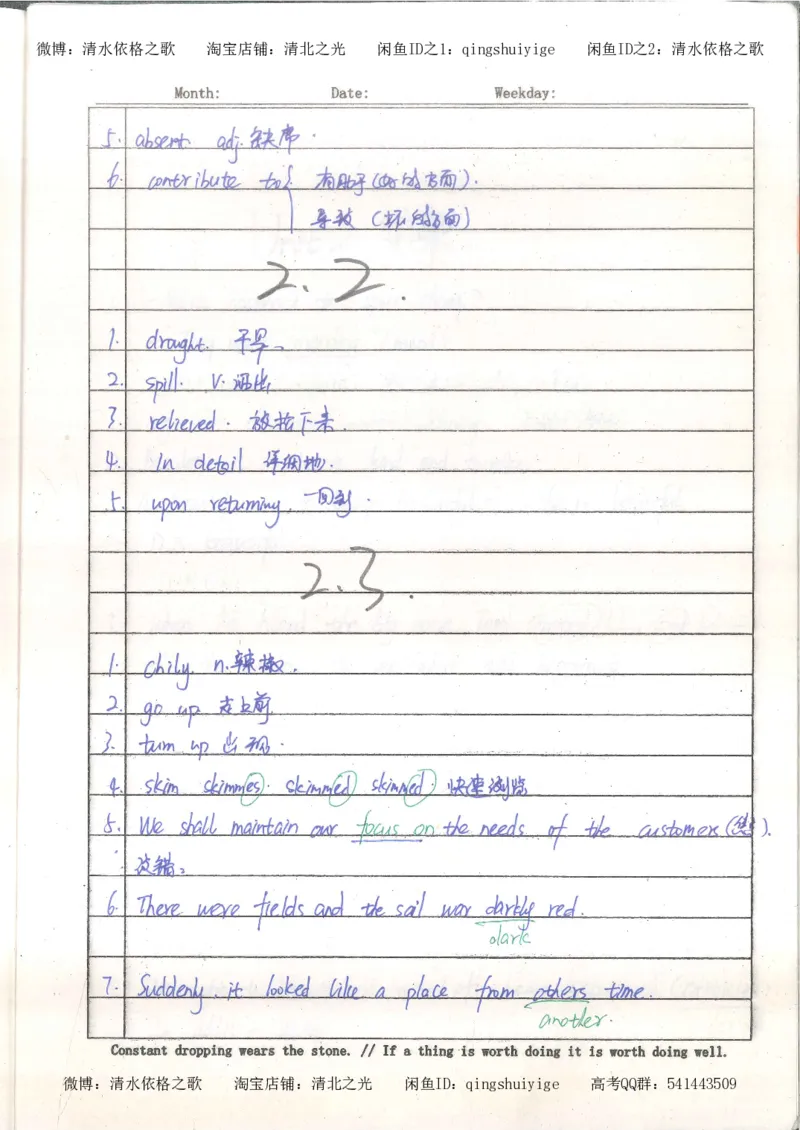 微博：清水依格之歌 淘宝店铺：清北之光 闲鱼ID之1：qingshuiyige 闲鱼ID之2：清水依格之歌
Month: Date: Weekday:
5. absent. adj. 缺席.
6. contribute to { 有助于(好的方面).
导致 (坏的方面)
2.2.
1. drought. 干旱。
2. spill. V. 洒出
3. relieved. 放松下来
4. In detail 详细地.
5. upon returning, 一回到.
2.3.
1. chily. n. 辣椒.
2. go up 走上前
3. turn up 出现.
4. skim skimmes. skimmed skimmed. 快速浏览
5. We shall maintain our focus on the needs of the customers ( ).
没错。
6. There were fields and the soil was darkly red.
dark
7. Suddenly, it looked like a place from others time.
another.
Constant dropping wears the stone. // If a thing is worth doing it is worth doing well.
微博：清水依格之歌 淘宝店铺：清北之光 闲鱼ID：qingshuiyige 高考QQ群：541443509